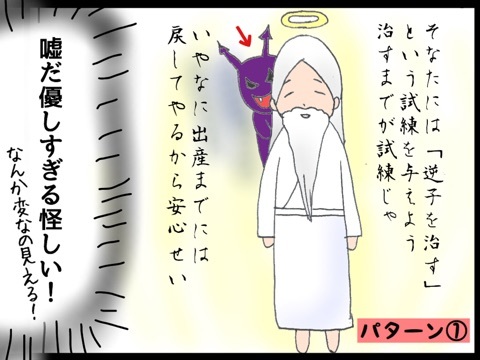 そなたには「逆子を治す」
という試練を与えよう
治すまでが試練じゃ
いやなに出産までには
戻してやるから安心せい
嘘だ優しすぎる怪しい！
なんか変なの見える！
パターン①